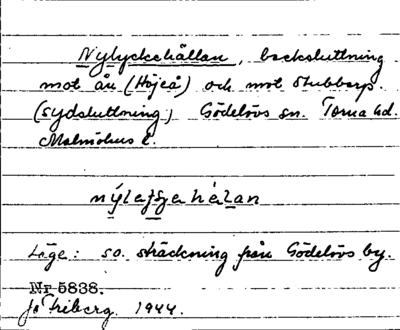 Nylyckehållan, backsluttning
mot ån (Höjeå) och mot Stubbarp.
(sydsluttning) Gödelövs sn. Torna hd.
Malmöhus l.
Läge: so. sträckning från Gödelövs by.
Nr 5838.
Friberg. 1944.